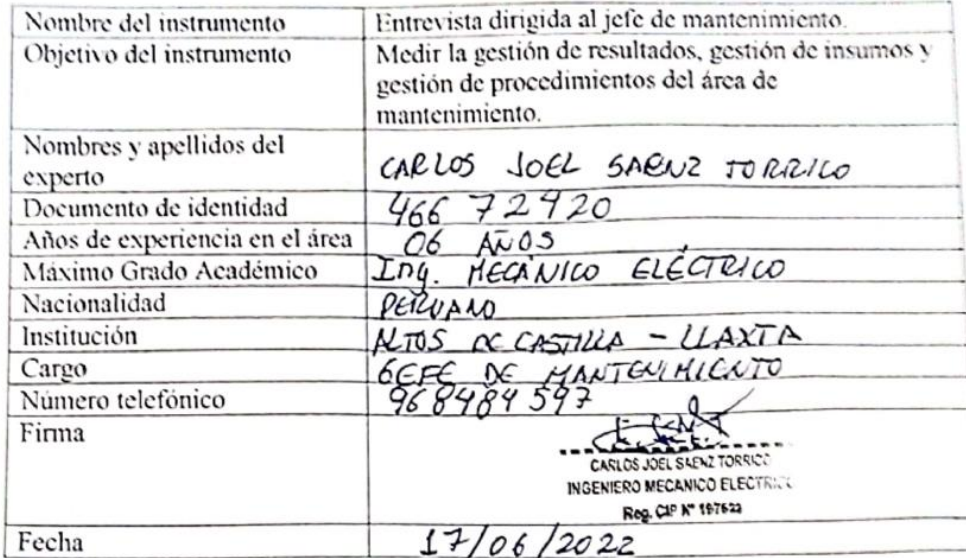 Nombre del instrumento Entrevista dirigida al jefe de mantenimiento.
Objetivo del instrumento Medir la gestión de resultados, gestión de insumos y
gestión de procedimientos del área de
mantenimiento.
Nombres y apellidos del
experto CARLOS JOEL SAENZ TORRICO
Documento de identidad 46672920
Años de experiencia en el área 06 AÑOS
Máximo Grado Académico Ing. MECÁNICO ELÉCTRICO
Nacionalidad PERUANO
Institución ALTOS DE CASTILLA - LLAXTA
Cargo GEFE DE MANTENIMIENTO
Número telefónico 968484597
Firma
CARLOS JOEL SAENZ TORRICO
INGENIERO MECANICO ELECTRICO
Reg. CIP N° 197622
Fecha 17/06/2022